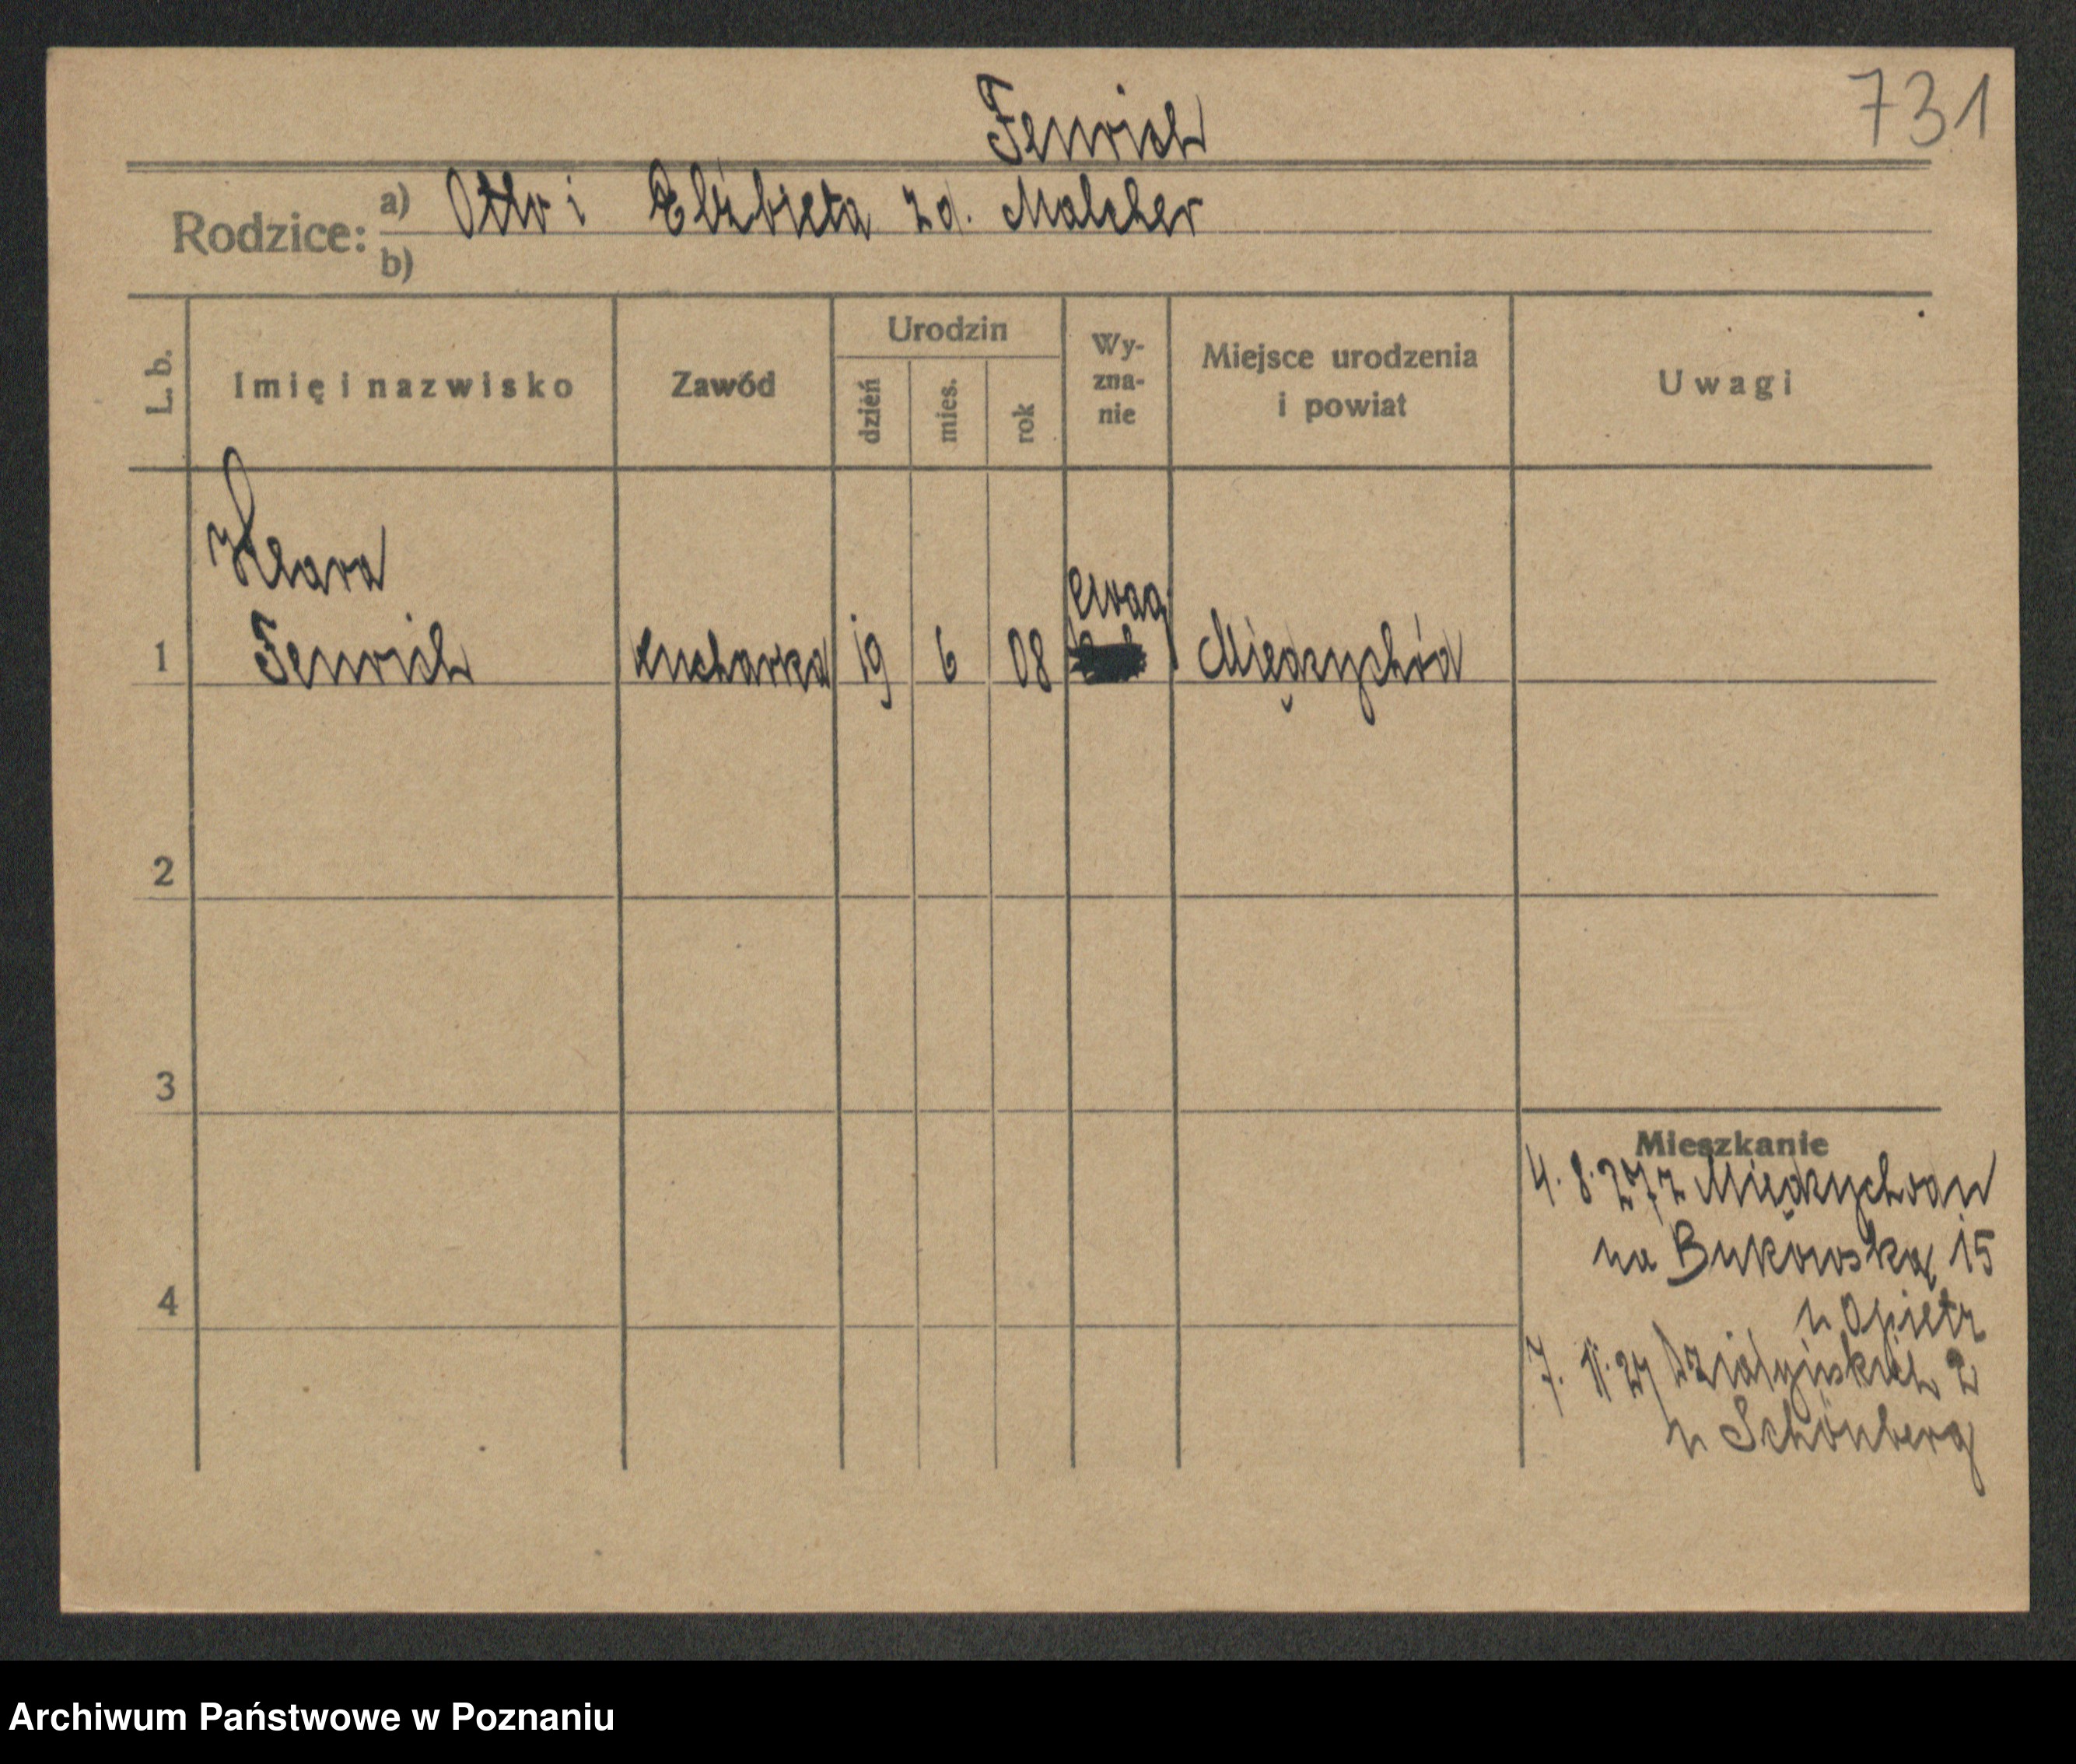 731
Fenrich
Rodzice: a) Otto i Elżbieta zd. Malcher
b)
L. b.
Imię i nazwisko
Zawód
Urodzin
dzień
mies.
rok
Wy-
zna-
nie
Miejsce urodzenia
i powiat
Uwagi
Klara
1 Fenrich kucharka 19 6 08 ewag Międzychód
2
3
4
Mieszkanie
4. 8. 27 z Międzychodu
na Bukowską 15
u Opietz
7. 11. 27 Działyńskich 2
u Schönberg
Archiwum Państwowe w Poznaniu